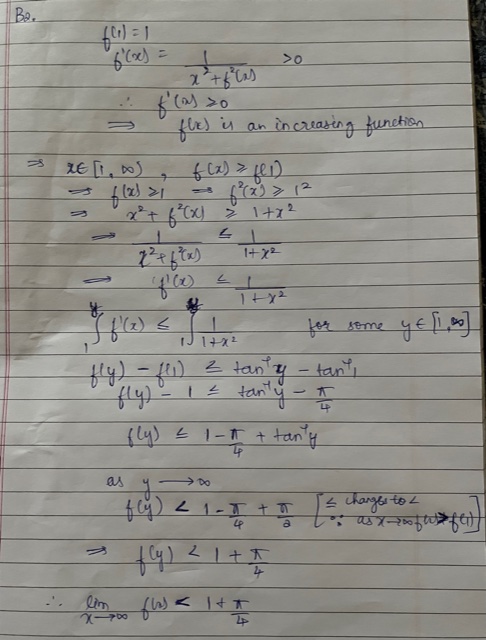 B2.
f(1) = 1
f'(x) = 1/(x² + f²(x)) > 0
∴ f'(x) > 0
⇒ f(x) is an increasing function
⇒ x ∈ [1, ∞) , f(x) ≥ f(1)
⇒ f(x) ≥ 1 ⇒ f²(x) ≥ 1²
⇒ x² + f²(x) ≥ 1 + x²
⇒ 1/(x² + f²(x)) ≤ 1/(1 + x²)
⇒ f'(x) ≤ 1/(1 + x²)
∫₁^y f'(x) ≤ ∫₁^y 1/(1 + x²) for some y ∈ [1, ∞]
f(y) - f(1) ≤ tan⁻¹y - tan⁻¹1
f(y) - 1 ≤ tan⁻¹y - π/4
f(y) ≤ 1 - π/4 + tan⁻¹y
as y → ∞
f(y) < 1 - π/4 + π/2 [≤ changes to < ∵ as x → ∞ f(x) > f(1)]
⇒ f(y) < 1 + π/4
∴ lim x→∞ f(x) < 1 + π/4